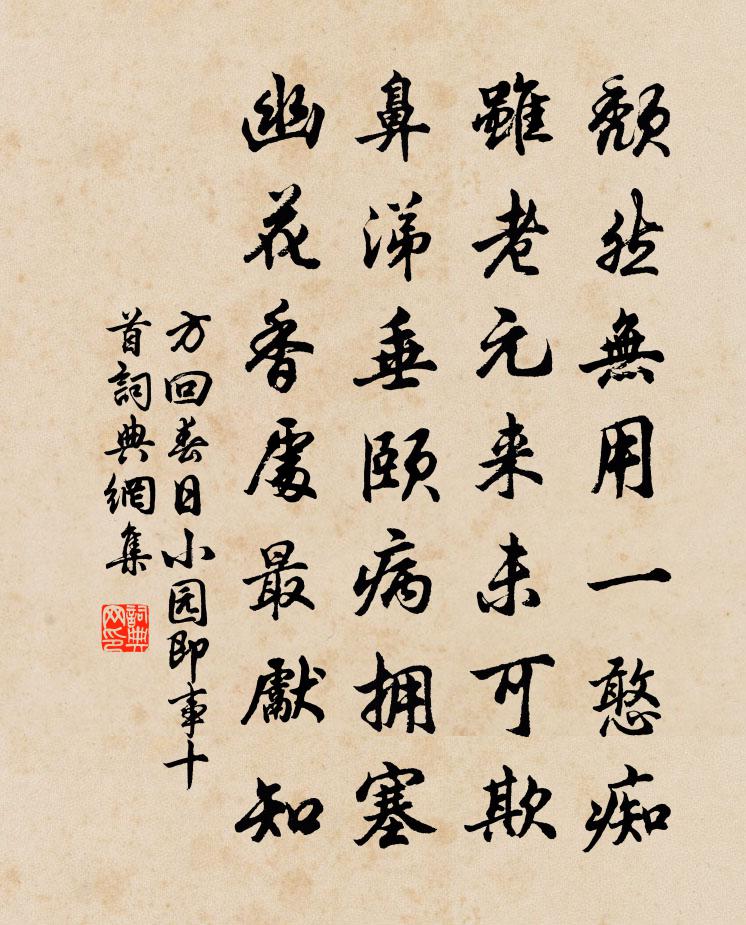 頹然無用一憨痴
雖老元来未可欺
鼻涕垂頤病拥塞
幽花香處最獻知
方回春日小园即事十
首詞典網集
詞典网印